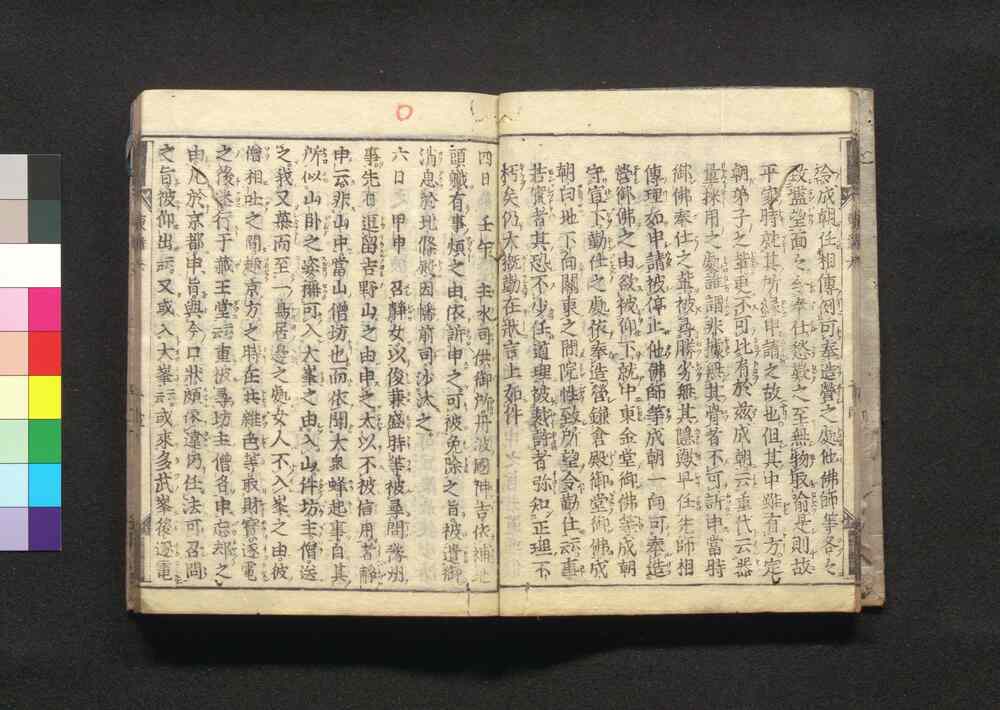 給成朝任相傳例可奉造營之處他佛師等各々
致濫望面々令奉仕慇懃之至無物取喻是則故
平家時就其所縁申請之故也但其中雖有方定
朝弟子之輩更不可比肩於茲成朝云重代云器
量採用之處誰謂非據無其骨者不可訴申當時
御佛奉仕之輩被尋勝劣無其隱歟早任先師相
傳理如申請被停止他佛師等成朝一向可奉造
營御佛之由欲被仰下就中東金堂御佛等成朝
守宣下勤仕之處依奉造營鎌倉殿御堂御佛成
朝白地下向關東之間院性致所望令勤仕云事
若實者其恐不少任道理被裁許者弥知正理不
朽矣仍大概勤在狀言上如件
四日 壬午 主水司供御所丹波國神吉依補地
頭職有事煩之由依訴申之可被免除之旨被遣御
消息於北條殿因幡前司沙汰之
六日 甲申 召靜女以俊兼盛時等被尋問豫州
事先日逗留吉野山之由申之太以不被信用者靜
申云非山中當山僧坊也而依聞大衆蜂起事自其
所似山臥之姿稱可入大峯之由入山件坊主僧送
之我又慕而至一鳥居邊之處女人不入峯之由彼
僧相叱之間趣京方之時在共雜色等取財寶逐電
之後迷行于藏王堂云重被尋坊主僧名申忘却之
由凡於京都申旨與今口狀頗依違仍任法可召問
之旨被仰出云又或入大峯云或來多武峯後逐電